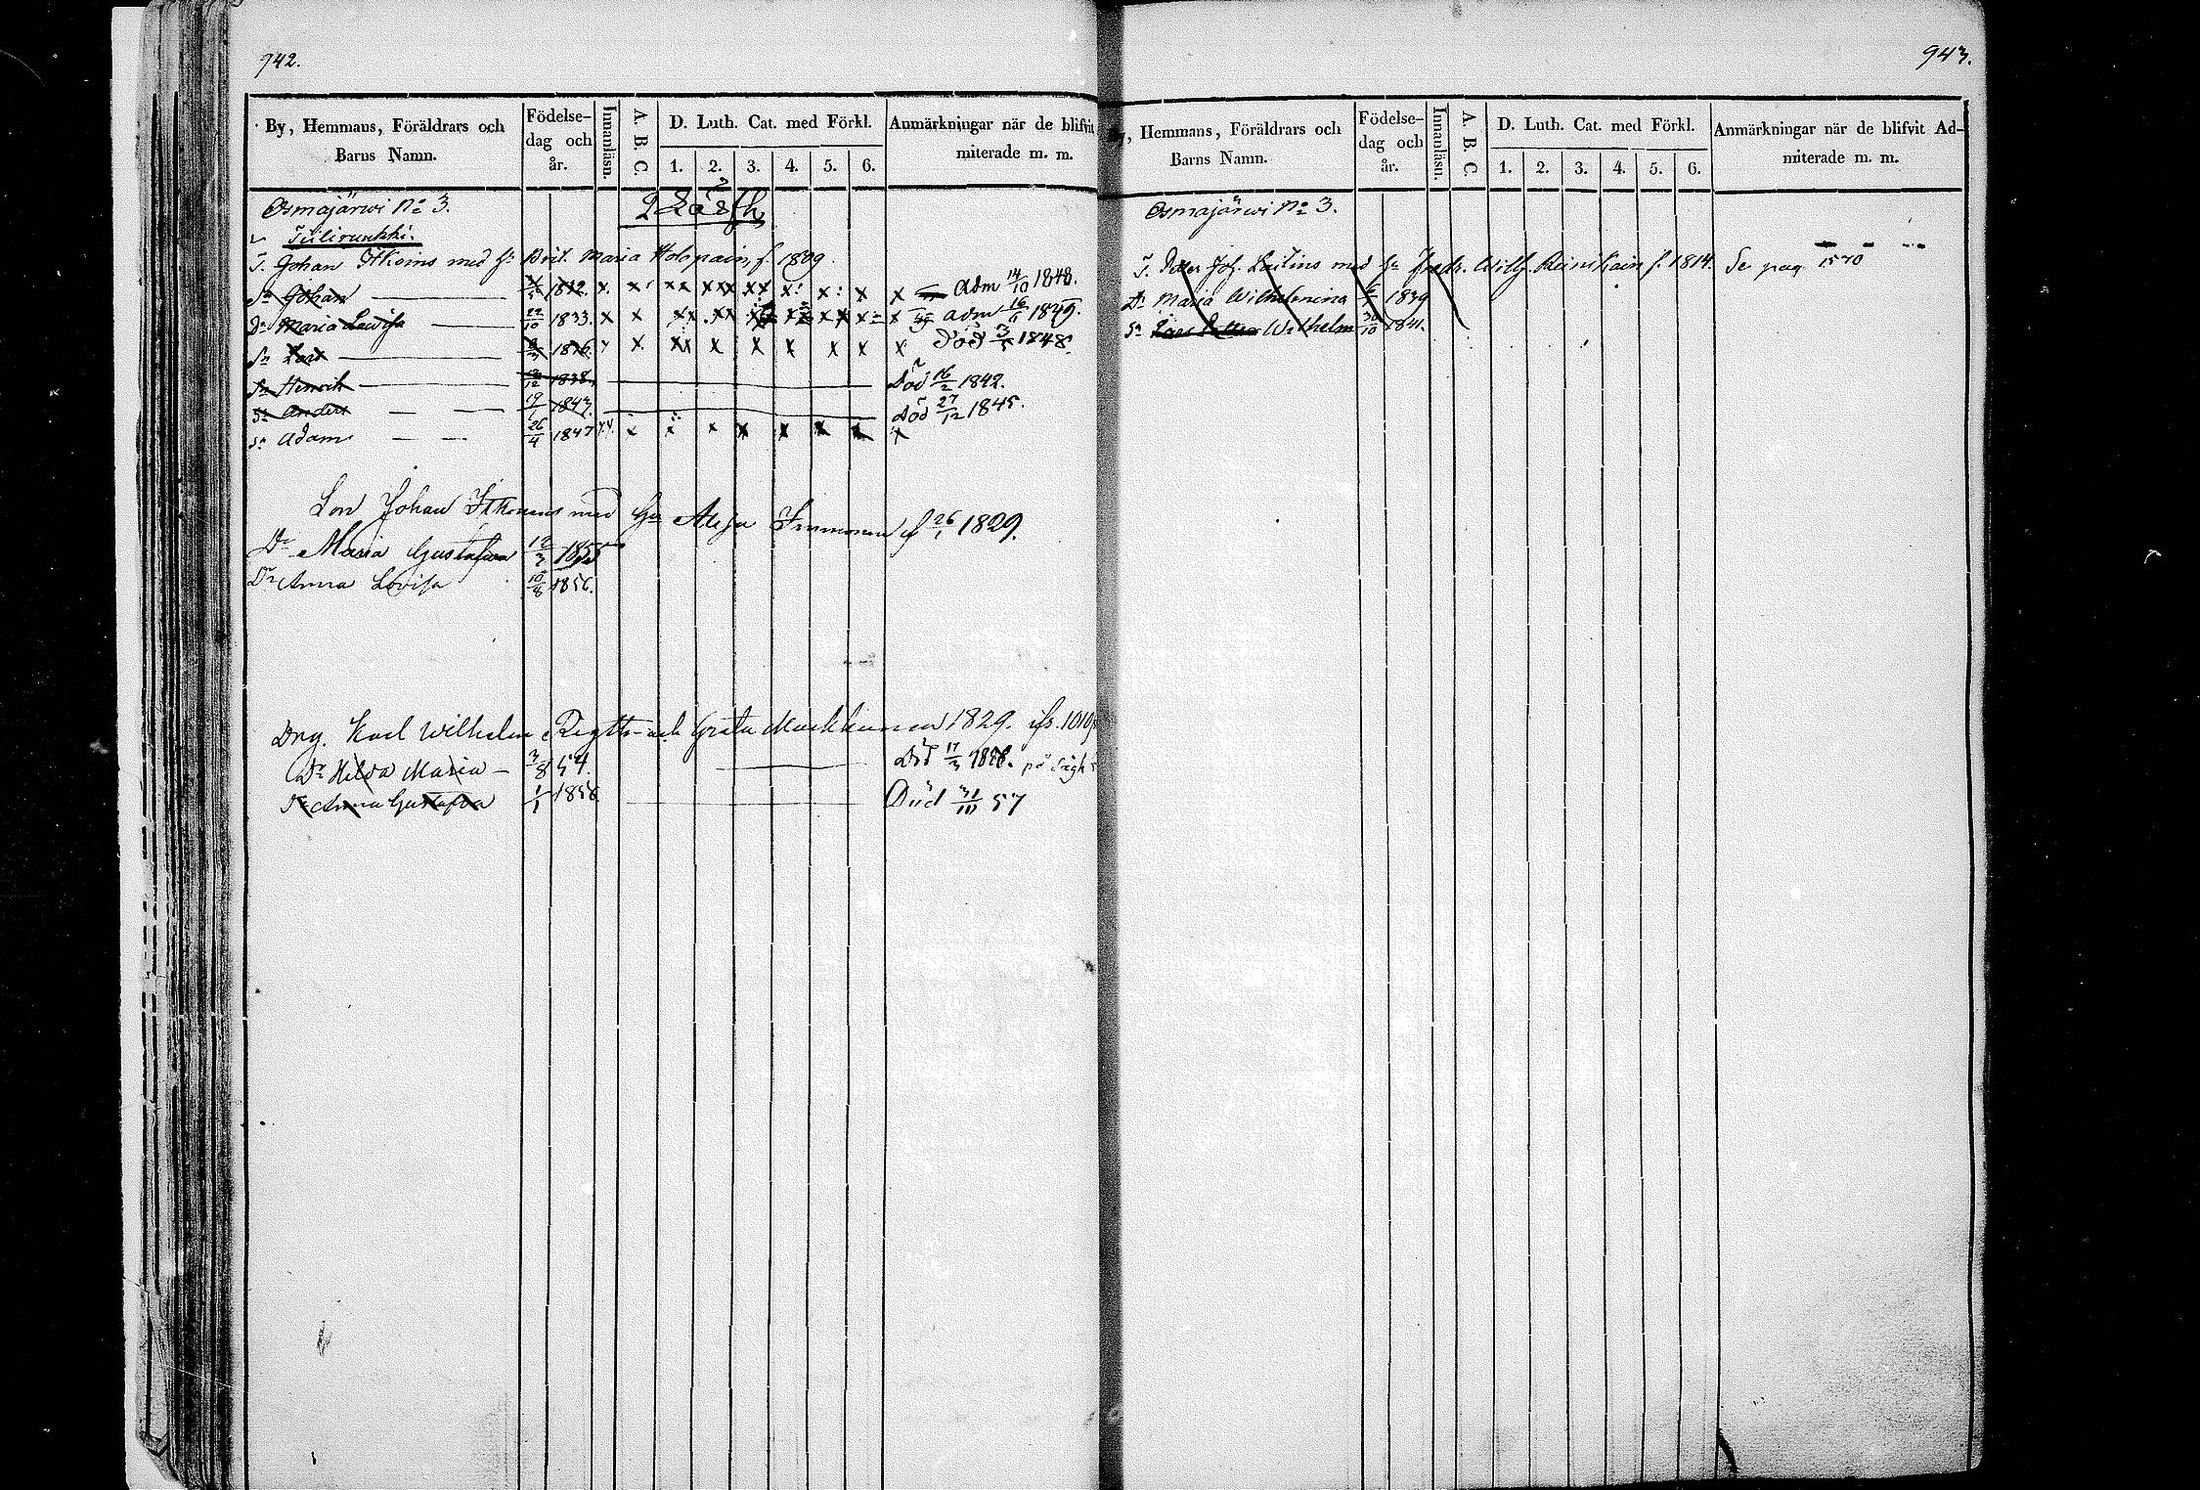 942.
By, Hemmans, Föräldrars och Barns Namn. Födelse-dag och år. Innanläsn. A. B. C. D. Luth. Cat. med Förkl. 1. 2. 3. 4. 5. 6. Anmärkningar när de blifvit miterade m. m.
Osmajärwi No 3.
T. Johan Itkoins med Hu Brit. Maria Holopain, f. 1809.
Sn Johan x x x x x x x x x Adm 14/10 1848.
Dr Maria Lowisa 22/10 1833. x x x x x x x x x adm 16/6 1849.
Sn Lars x x x x x x x x Död 3/5 1848.
Sn Henrik 1838. Död 16/2 1842.
Sn Anders 19/1 1843. Död 27/12 1845.
Sn Adam 26/4 1847 x x x x x x x x
Son Johan Itkonens med Hu Immonen f 26/1 1829.
Dr Maria Gustafwa 12/3 1855
Dr Anna Lovisa 10/8 1856.
Drg. Karl Wilhelm och Greta 1829.
Dr Hilda Maria 3/8 54. Död 17/3
Anna Gustafva 1/1 Död 57
943.
By, Hemmans, Föräldrars och Barns Namn. Födelse-dag och år. Innanläsn. A. B. C D. Luth. Cat. med Förkl. 1. 2. 3. 4. 5. 6. Anmärkningar när de blifvit Ad-miterade m. m.
Osmajärwi No 3.
T. Petter Joh. Laitins med Hu Fredr. Wilh. Reinikain f. 1814. Se pag 1570
Dr Maria Wilhelmina 1839
Sn Wilhelm 30/10 1841.